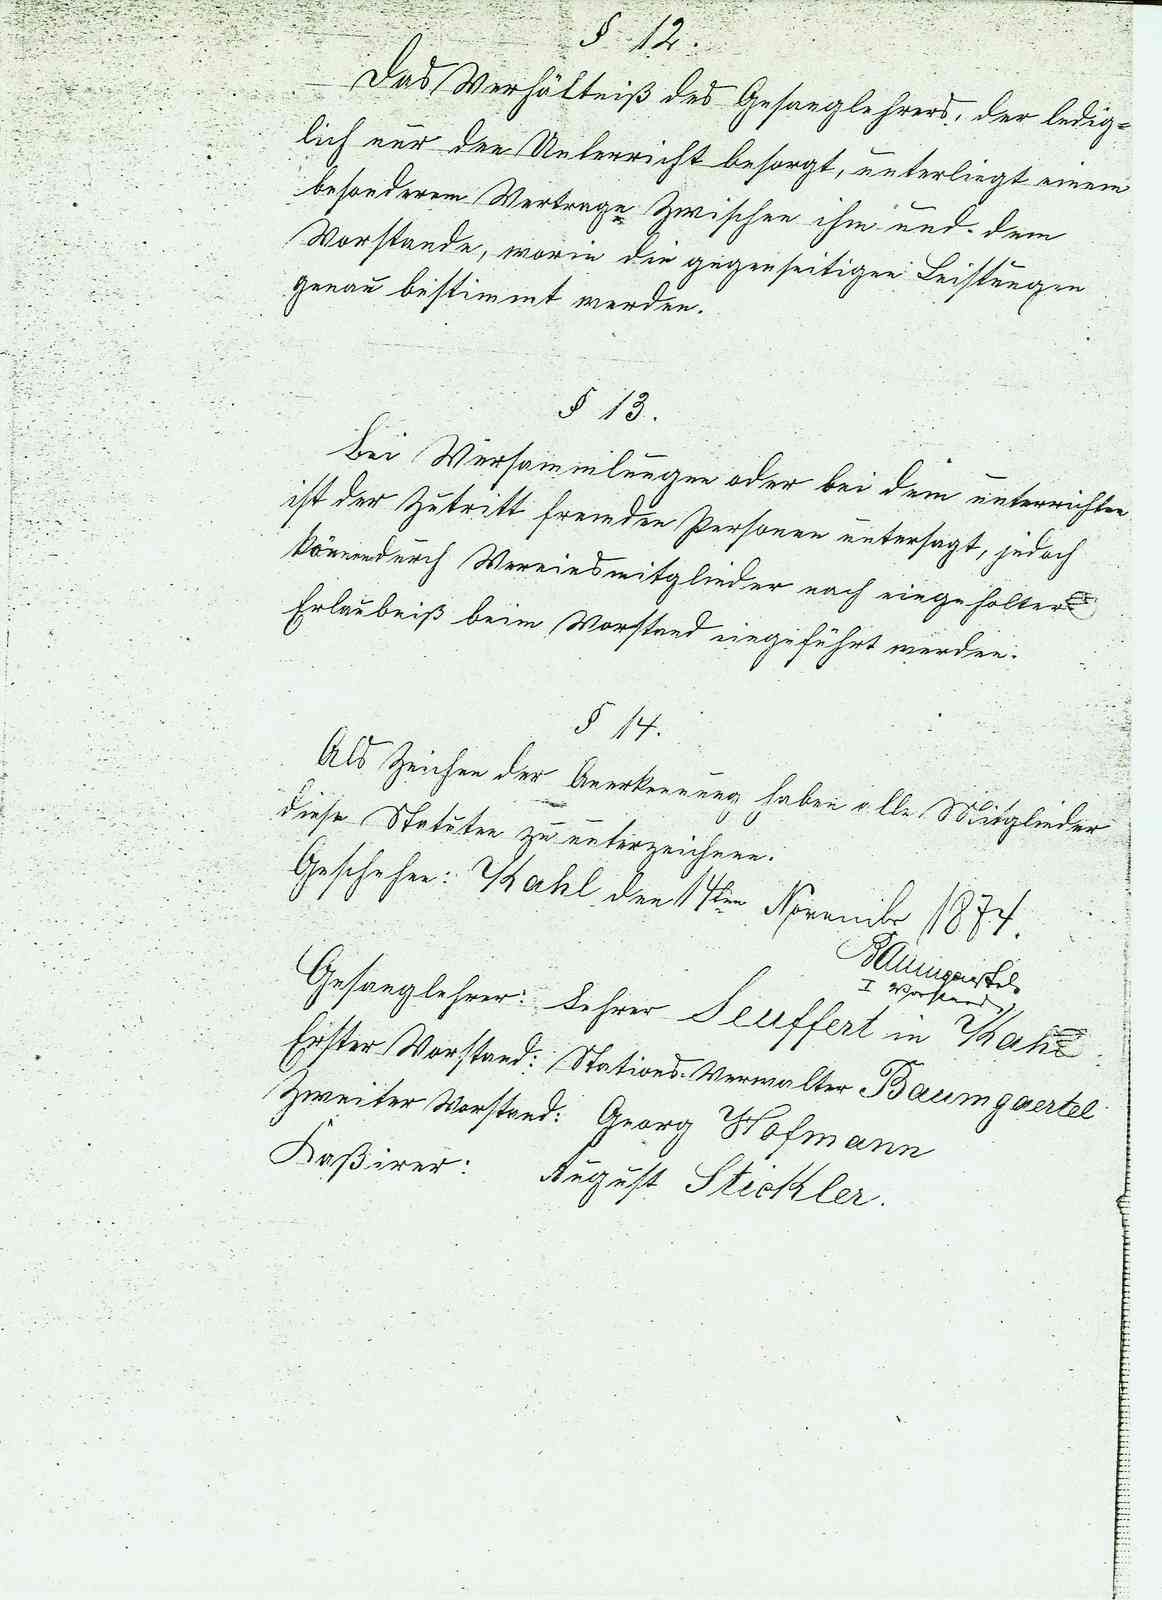 § 12.
Das Verhältniß des Gesanglehrers, der ledig=
lich nur den Unterricht besorgt, unterliegt einem
besonderem Vertrage zwischen ihm und dem
Vorstande, worin die gegenseitigen Leistungen
genau bestimmt werden.
§ 13.
Bei Versammlungen oder bei dem unterrichten
ist der Zutritt fremden Personen untersagt, jedoch
könnendurch Vereinsmitglieder nach eingeholter
Erlaubniß beim Vorstand eingeführt werden.
§ 14.
Als Zeichen der Anerkennung haben alle Mitglieder
diese Statuten zu unterzeichnen.
Geschehen: Kahl den 14ten November 1874.
Baumgaertel
I Vorstand
Gesanglehrer: Lehrer Seuffert in Kahl
Erster Vorstand: Stations-Verwalter Baumgaertel
Zweiter Vorstand: Georg Hofmann
Kaßirer: August Stickler.